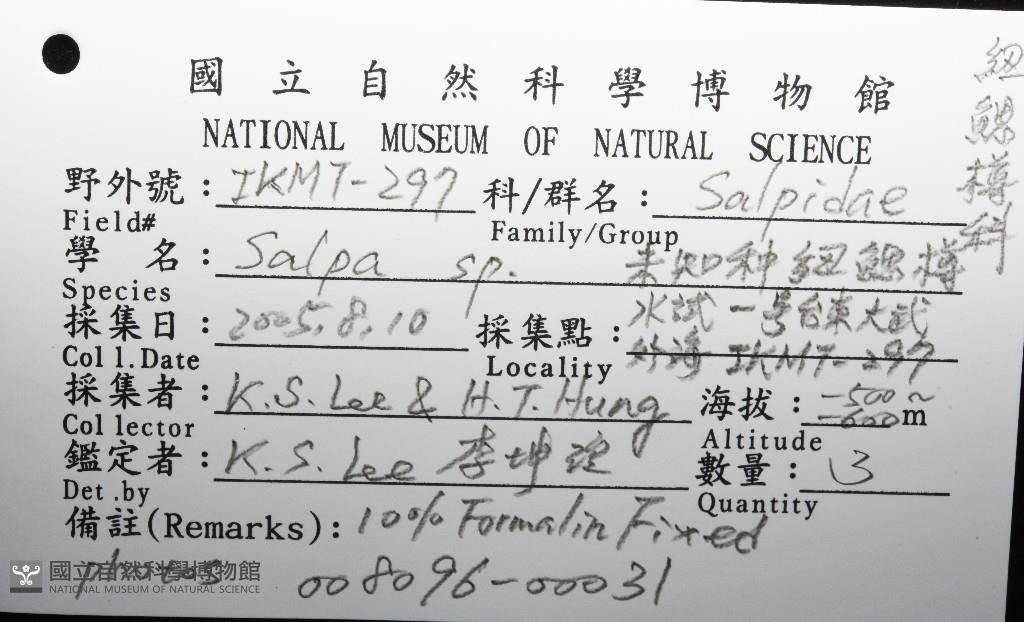 國立自然科學博物館
NATIONAL MUSEUM OF NATURAL SCIENCE
紐鰓樽科
野外號：IKMT-297 科/群名：Salpidae
Field# Family/Group
學名：Salpa sp. 未知种紐鰓樽
Species
採集日：2005.8.10 採集點：水試一号台東大武
外海 IKMT-297
Coll.Date Locality
採集者：K.S. Lee & H.T. Hung 海拔：-500~
-600m
Collector Altitude
鑑定者：K.S. Lee 李坤瑄 數量：3
Det.by Quantity
備註(Remarks)：10% Formalin Fixed
photos 008096-00031
國立自然科學博物館
NATIONAL MUSEUM OF NATURAL SCIENCE